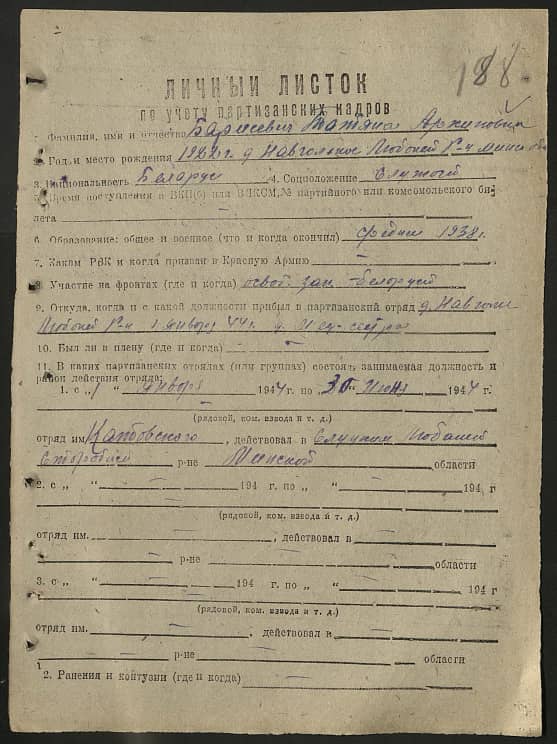 188
ЛИЧНЫЙ ЛИСТОК
по учету партизанских кадров
1. Фамилия, имя и отчество Барисевич Татяна Архиповна
2. Год и место рождения 1922 г. д Навгольное Любонск Р-н Минс
3. Национальность Беларус 4. Соцположение Служащ
5. Время поступления в ВКП(б) или ВЛКСМ, № партийного или комсомольского би-
лета —
6. Образование: общее и военное (что и когда окончил) Средние 1938 г.
7. Каким РВК и когда призван в Красную Армию —
8. Участие на фронтах (где и когда) освоб. зап. Белорусий
9. Откуда, когда и с какой должности прибыл в партизанский отряд д. Навголь
Любонск Р-н 1 января 44 г. д. сестра
10. Был ли в плену (где и когда) —
11. В каких партизанских отрядах (или группах) состоял, занимаемая должность и
район действия отряда:
1. с „1 “ января 1944 г. по „30“ июня 1944 г.
(рядовой, ком. взвода и т. д.)
отряд им. Катовского, действовал в Слуцким Любаней
р-не Минской области
2. с „ “ — 194 г. по „ “ — 194 г
(рядовой, ком. взвода и т. д.)
отряд им. —, действовал в —
— р-не — области
3. с „ “ — 194 г. по „ “ — 194 г
(рядовой, ком. взвода и т. д.)
отряд им. —, действовал в —
— р-не — области
2. Ранения и контузии (где и когда) —